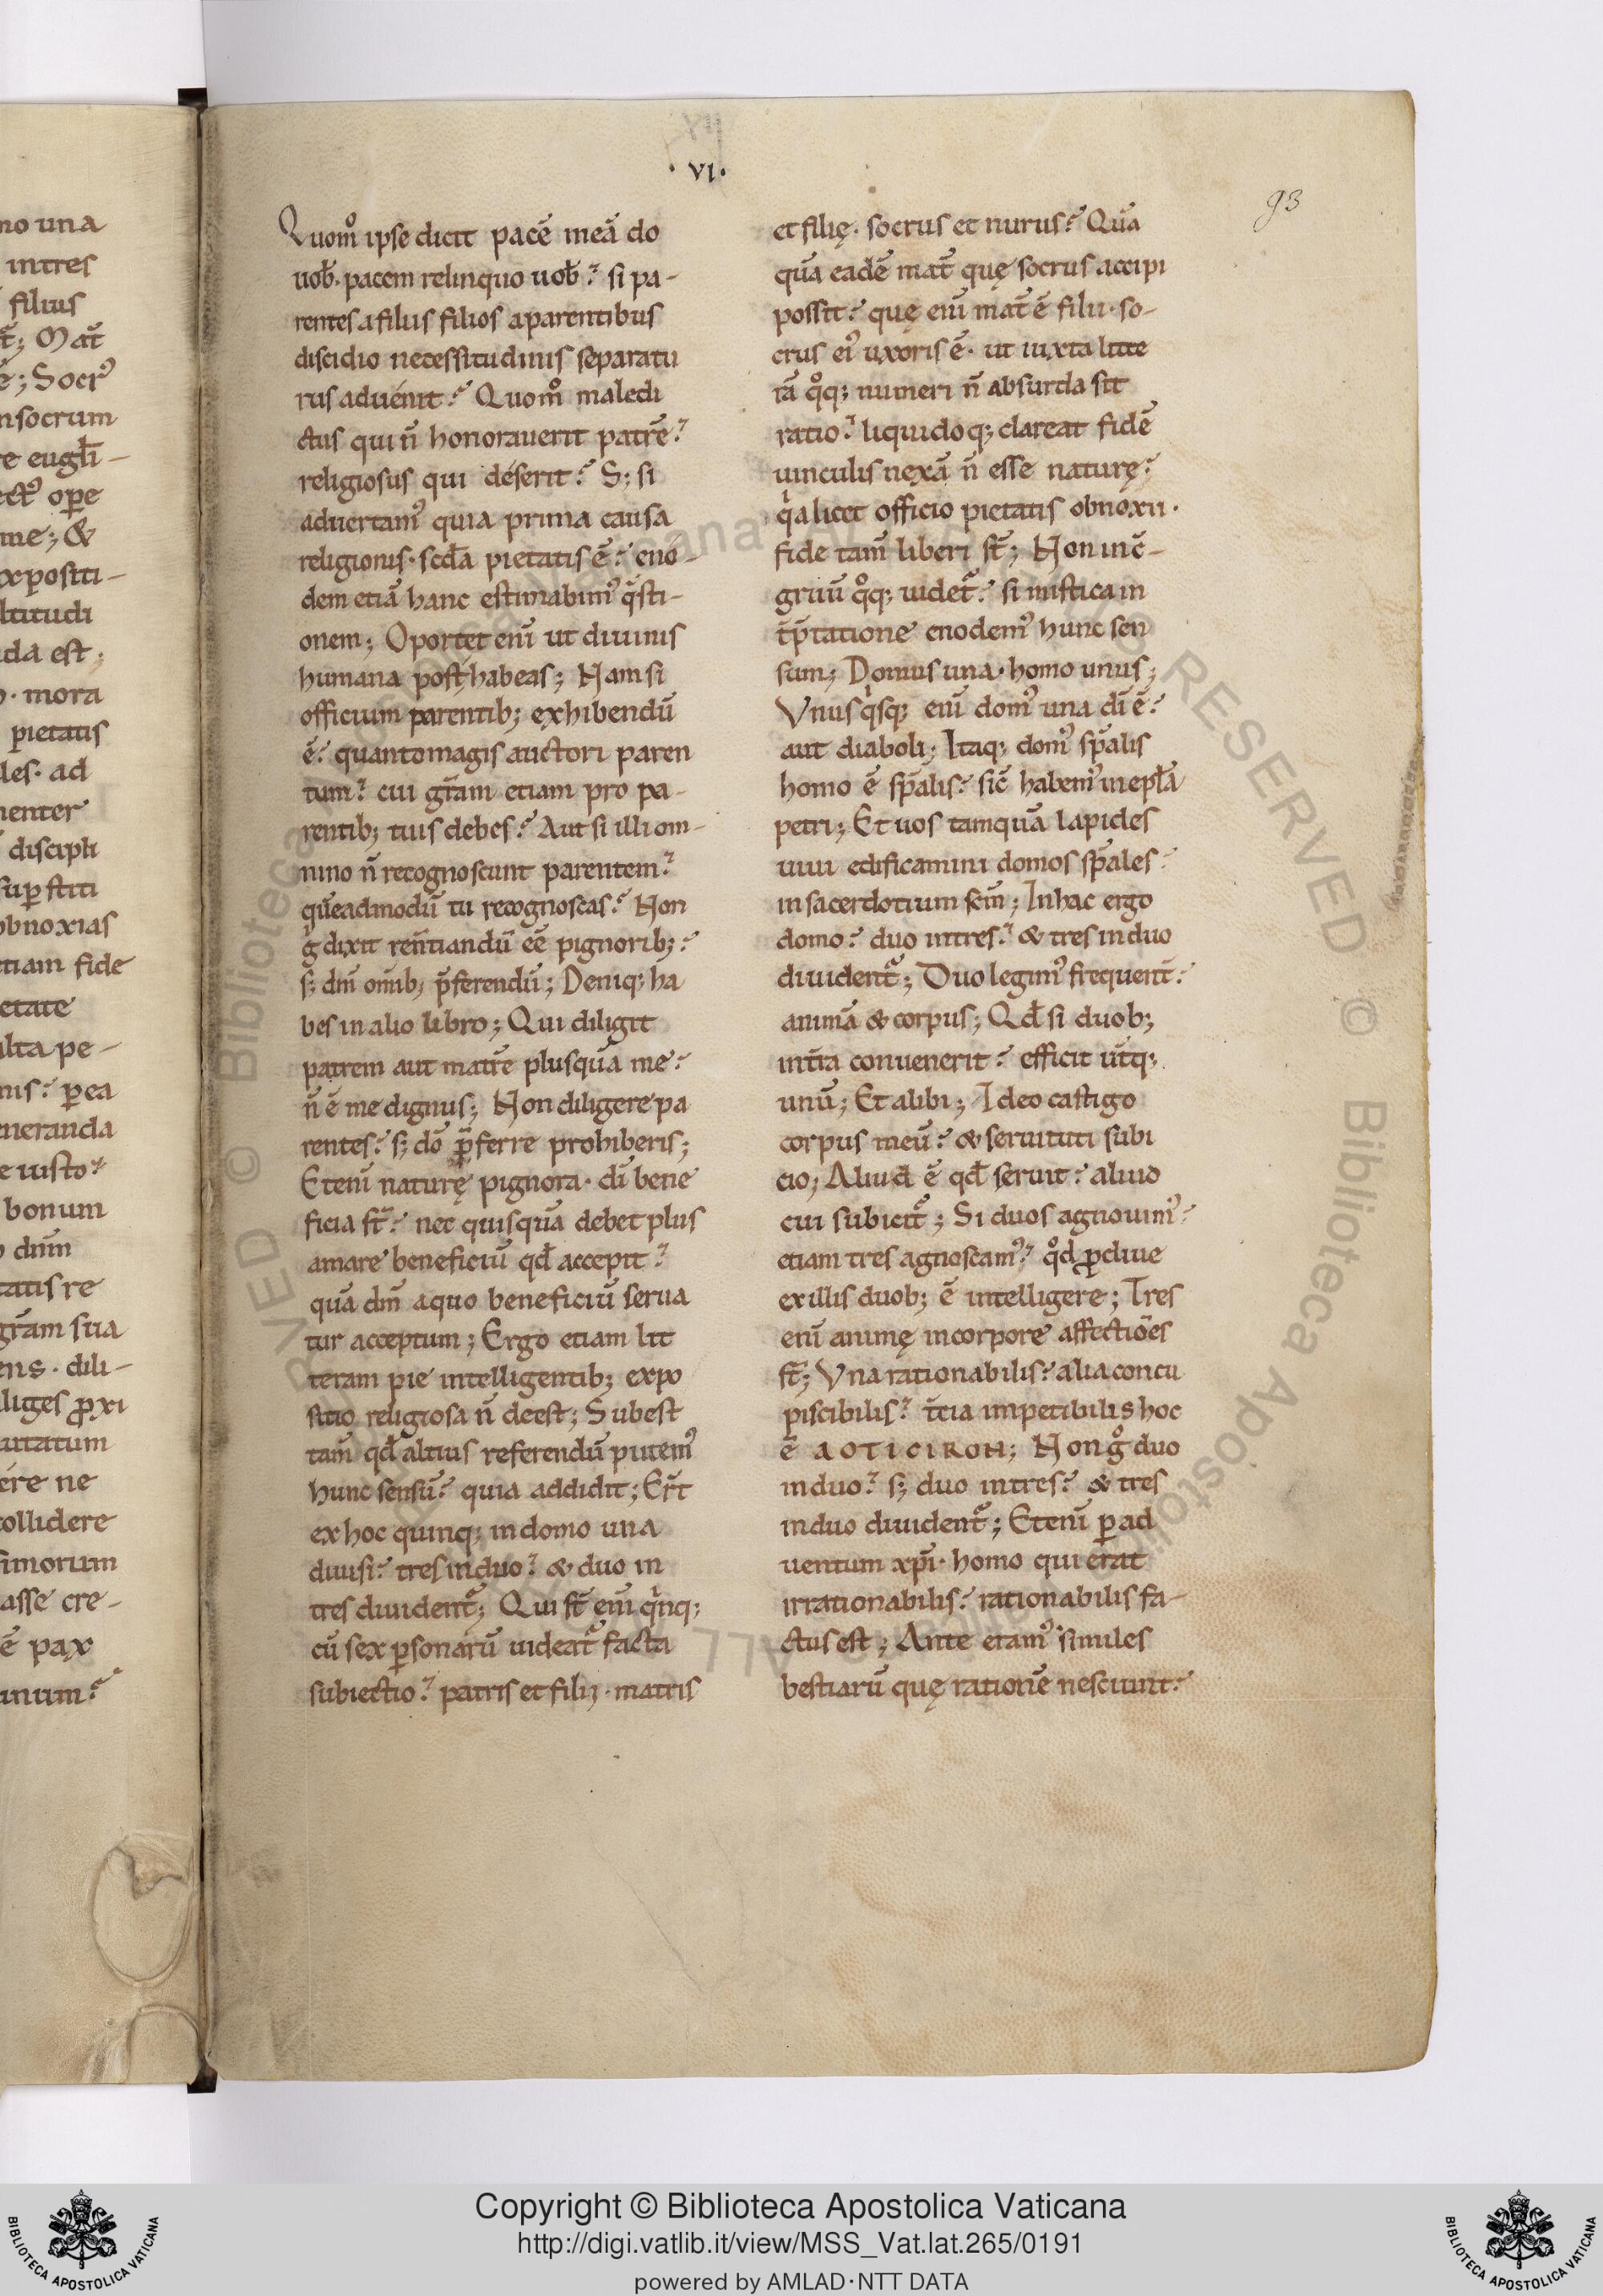 no una
intres
filius
t̄; Mat̄
ē; Socr᷒
nsocrum
re eugl̄i-
ect᷒ ope
me; &
xpositi-
ltitudi
da est;
o· mora
pietatis
les· ad
menter
discipli
sup̱stiti
obnoxias
etiam fide
etate
ulta pe-
nis? p̱ea
neranda
e iusto
bonum
dn̄m
tatis re
gr̄am sua
ens· dili-
liges ꝓxi
uitatum
ére ne
collidere
simorum
asse cre-
ē pax
inum?
·VI·
93
Quom̊ ipse dicit pacē meā do
uob̄· pacem relinquo uob̄? si pa-
rentes afiliis filios aparentibus
discidio necessitudinis separatu
rus aduénit? Quom̊ maledi
ctus qui n̄ honorauerit patrē?
religiosus qui déserit? S; si
aduertam᷒ quia prima causa
religionis· scd̄a pietatis ē? eno-
dem etiā hanc estimabim᷒ q̄sti-
onem; Oportet eni̅ ut diuinis
humana posthabeas; Nam si
officium parentib; exhibendū
ē? quantomagis auctori paren
tum? cui gr̄am etiam pro pa-
rentib; tuis debes? Aut si illi om-
nino n̄ recognoscunt parentem?
quēadmodū tu recognoscas? Non
g̊ dixit ren̄tiandū eē pignorib;?
s; dm̄ om̄ib; p̄ferendū; Deniq; ha
bes in alio libro; Qui diligit
patrem aut matrē plusquā me?
n̄ ē me dignus; Non diligere pa
rentes? s; dō p̄ferre prohiberis;
Eteni̅ naturę pignora· di̅ bene
ficia st̄? nec quisquā debet plus
amare beneficiū qd̄ accepit?
quā dm̄ aquo beneficiū serua
tur acceptum; Ergo etiam lit
teram pie intelligentib; expo
sitio religiosa n̄ deest; Subest
tam̄ qd̄ altius referendū putem᷒
hunc sensū? quia addidit; Er̄t
ex hoc quinq; indomo una
diuisi? tres induo? & duo in
tres diuident᷑; Qui st̄ eni̅ qinq;
cū sex p̱sonarū uideat᷑ facta
subiectio? patris et filii· matris
et filię· socrus et nurus? Quā
quā eadē mat̄ quę socrus accipi
possit? quę eni̅ mat̄ ē filii· so-
crus ei᷒ uxoris ē· ut iuxta litte
rā qo̊q; numeri n̄ absurda sit
ratio? liquidoq; clareat fidē
uinculis nexā n̄ esse naturę?
qa licet officio pietatis obnoxii·
fide tam̄ liberi st̄; Non incō-
gruū qo̊q; uidet᷑? si mistica in
t̄p̄tatione enodem᷒ hunc sen
sum; Domus una· homo unus;
Vnusqsq; eni̅ dom᷒ una di̅ ē?
aut diaboli; Itaq; dom᷒ sp̄alis
homo ē sp̄alis? sic̄ habem᷒ inepl̄a
petri; Et uos tamquā lapides
uiui edificamini domos sp̄ales?
insacerdotium sc̄m; Inhac ergo
domo? duo intres? & tres induo
diuident᷑; Duo legim᷒ frequent̄?
animā & corpus; Qd̄ si duob;
int̄ia conuenerit? efficit ut̄q;
unū; Et alibi; Ideo castigo
corpus meū? & seruituti subi
cio; Aliud ē qd̄ seruit? aliud
cui subicit᷑; Si duos agnouim᷒?
etiam tres agnoscam᷒? qo̊d ꝓcliue
ex illis duob; ē intelligere; Tres
eni̅ animę incorpore affectiōes
st̄; Vna rationabilis? alia concu
piscibilis? t̄cia impetibilis hoc
ē AOTICIRON; Non g̊ duo
induo? s; duo intres? & tres
induo diuident᷑; Eteni̅ p̱ ad
uentum xpi̅· homo qui erat
irrationabilis? rationabilis fa-
ctus est; Ante eram᷒ similes
bestiarū quę rationē nesciunt?
Copyright © Biblioteca Apostolica Vaticana
http://digi.vatlib.it/view/MSS_Vat.lat.265/0191
powered by AMLAD·NTT DATA
BIBLIOTECA APOSTOLICA VATICANA
BIBLIOTECA APOSTOLICA VATICANA